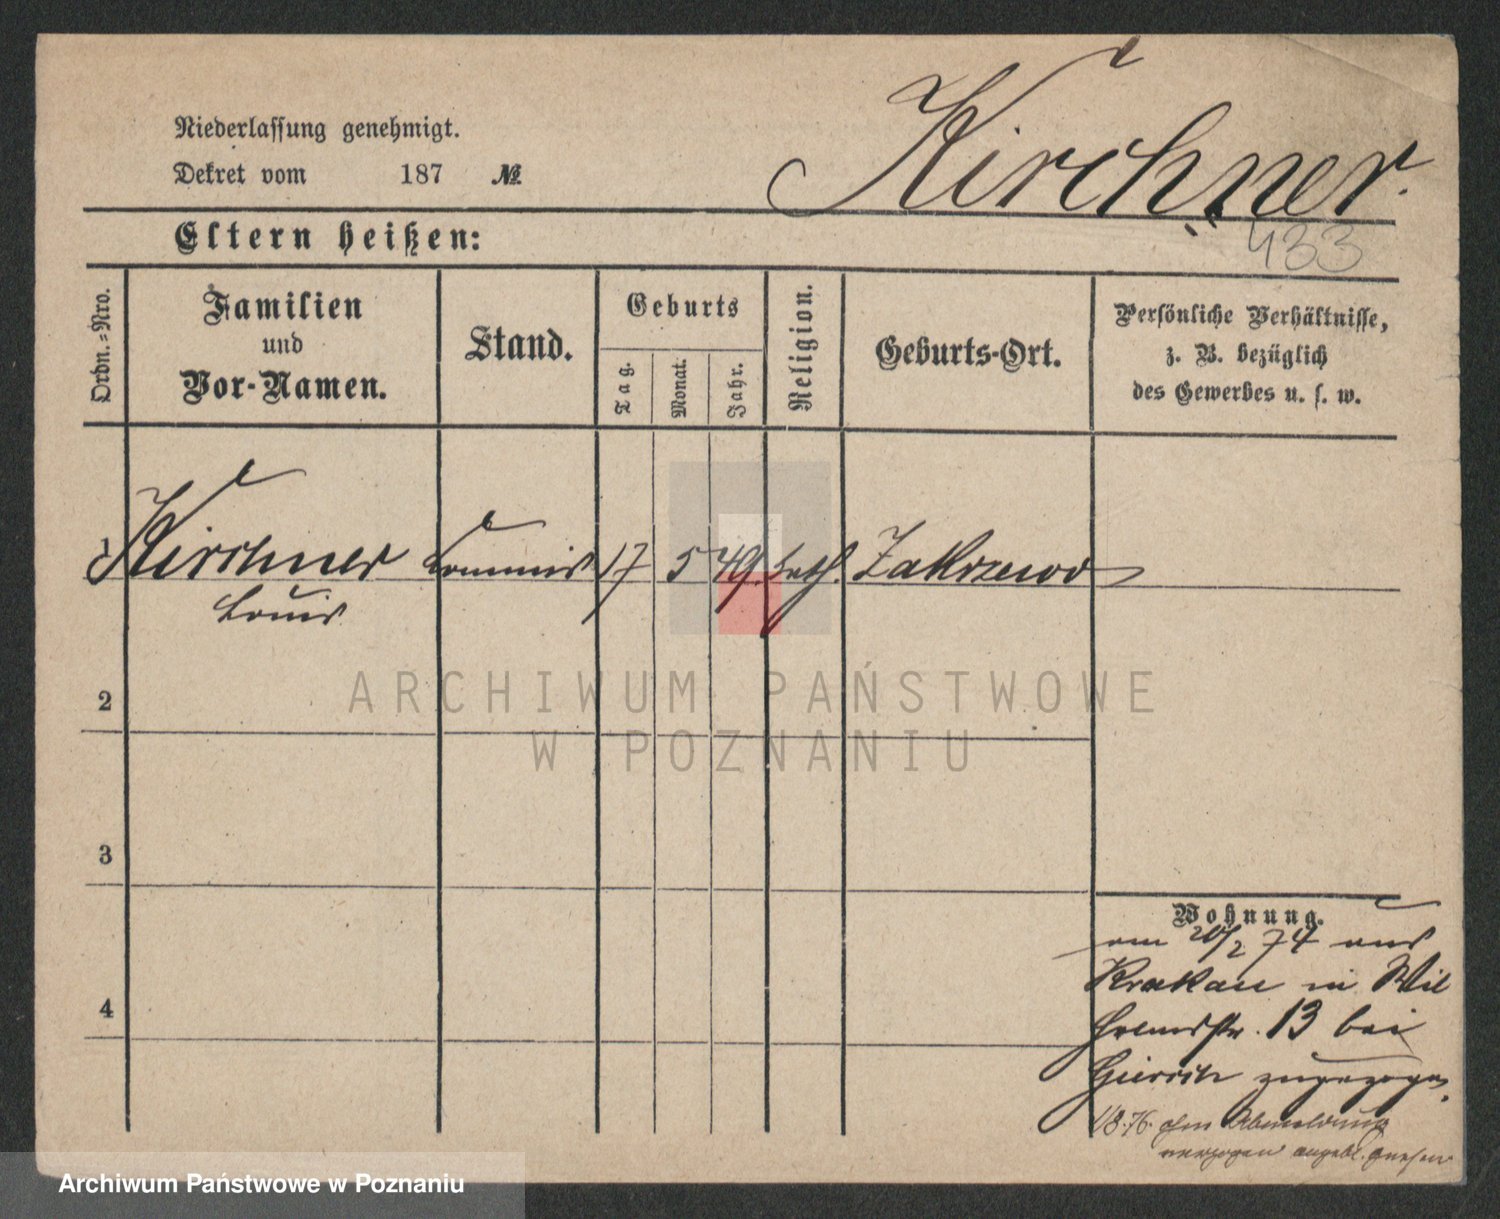 Kirchner.
Niederlassung genehmigt.
Dekret vom 187 №
Eltern heißen:
433
Ordn.-Nro.
Familien
und
Vor-Namen.
Stand.
Geburts
Tag.
Monat.
Jahr.
Religion.
Geburts-Ort.
Persönliche Verhältnisse,
z. B. bezüglich
des Gewerbes u. s. w.
1 Kirchner Commis 17 5 49. kath. Zakrzewo
Louis
2
ARCHIWUM PAŃSTWOWE
W POZNANIU
3
Wohnung.
am 20/2 74 aus
Krakau in Wil
helmstr. 13 bei
zugezogen.
4
1/8.76. ohne Abmeldung
verzogen angebl.
Archiwum Państwowe w Poznaniu